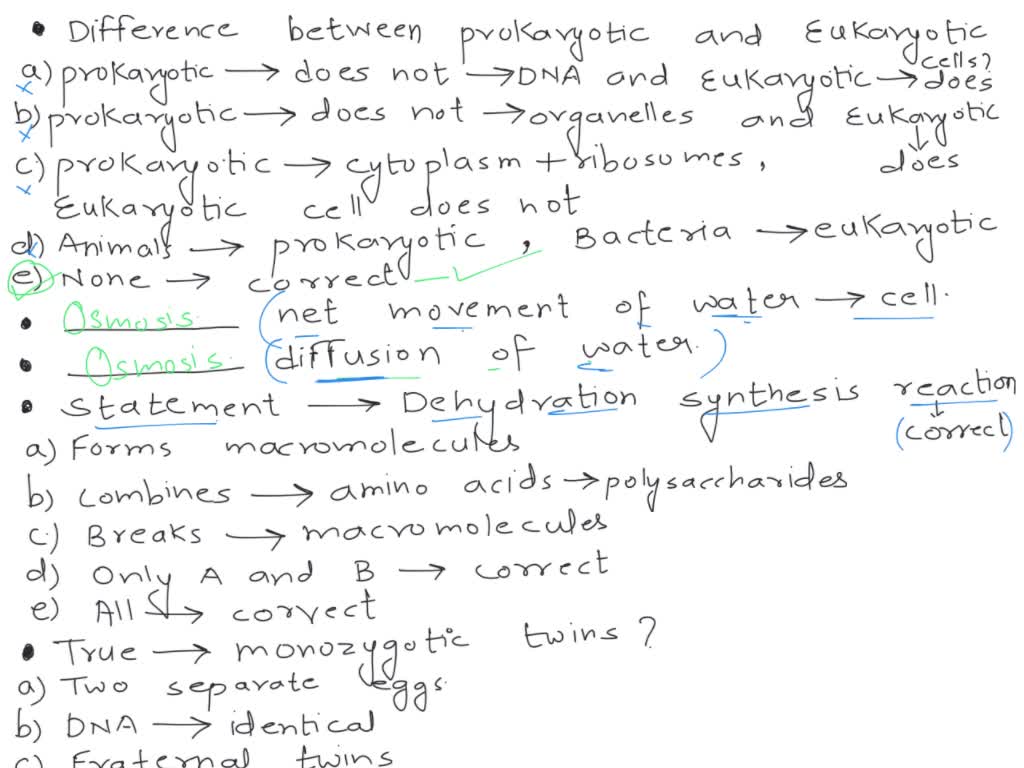 • Difference between prokaryotic and Eukaryotic cells?
a) prokaryotic → does not → DNA and Eukaryotic → does
b) prokaryotic → does not → organelles and Eukaryotic ↓ does
c) prokaryotic → cytoplasm + ribosomes,
Eukaryotic cell does not
d) Animals → prokaryotic, Bacteria → eukaryotic
e) None → correct
• Osmosis. (net movement of water → cell.
• Osmosis. (diffusion of water.)
• Statement → Dehydration synthesis reaction
(correct)
a) Forms macromolecules
b) combines → amino acids → polysaccharides
c) Breaks → macromolecules
d) Only A and B → correct
e) All → correct
• True → monozygotic twins?
a) Two separate eggs.
b) DNA → identical
c) Fraternal twins